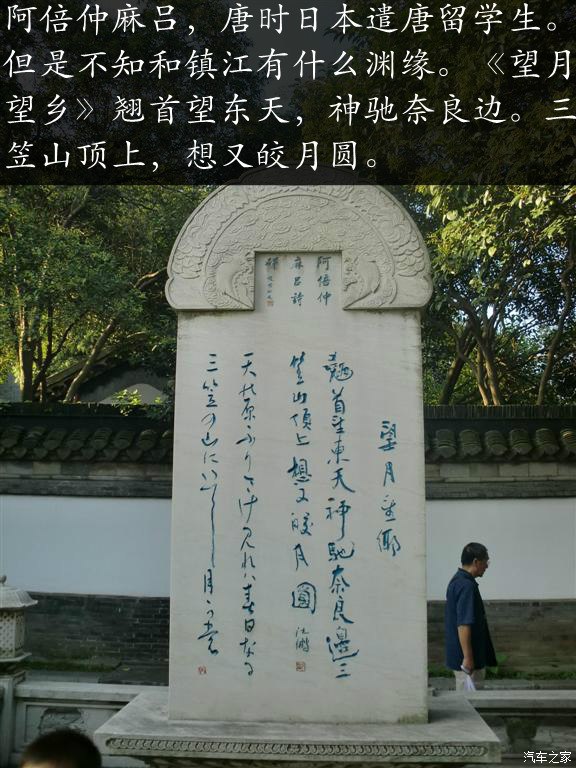 阿倍仲麻吕，唐时日本遣唐留学生。
但是不知和镇江有什么渊缘。《望月
望乡》翘首望东天，神驰奈良边。三
笠山顶上，想又皎月圆。
阿倍仲
麻吕诗
碑
望月望鄉
翹首望東天神馳奈良邊三
笠山頂上想又皎月圓
江樹
天の原ふりさけ見れハ春日なる
三笠の山にいてし月可裳
汽车之家